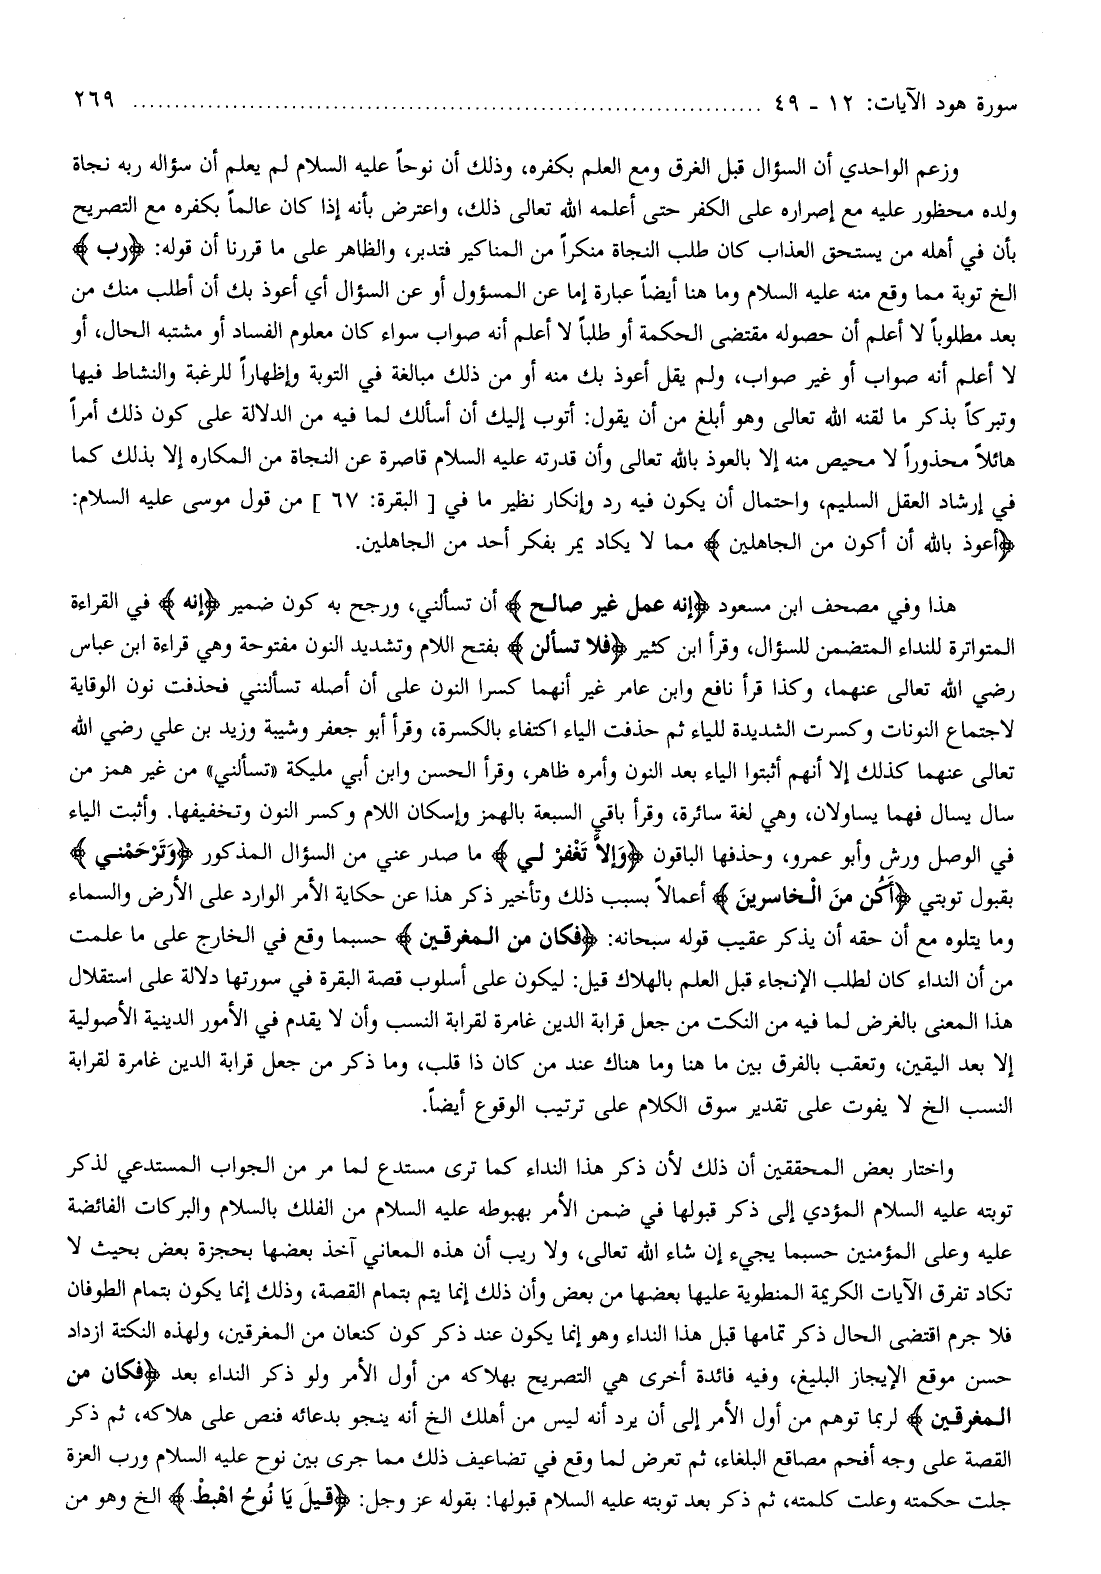 سورة هود الآيات: ١٢ - ٤٩ ................................................................ ٢٦٩
وزعم الواحدي أن السؤال قبل الغرق ومع العلم بكفره، وذلك أن نوحاً عليه السلام لم يعلم أن سؤاله ربه نجاة
ولده محظور عليه مع إصراره على الكفر حتى أعلمه الله تعالى ذلك، واعترض بأنه إذا كان عالماً بكفره مع التصريح
بأن في أهله من يستحق العذاب كان طلب النجاة منكراً من المناكير فتدبر، والظاهر على ما قررنا أن قوله: ﴿رب﴾
الخ توبة مما وقع منه عليه السلام وما هنا أيضاً عبارة إما عن المسؤول أو عن السؤال أي أعوذ بك أن أطلب منك من
بعد مطلوباً لا أعلم أن حصوله مقتضى الحكمة أو طلباً لا أعلم أنه صواب سواء كان معلوم الفساد أو مشتبه الحال، أو
لا أعلم أنه صواب أو غير صواب، ولم يقل أعوذ بك منه أو من ذلك مبالغة في التوبة وإظهاراً للرغبة والنشاط فيها
وتبركاً بذكر ما لقنه الله تعالى وهو أبلغ من أن يقول: أتوب إليك أن أسألك لما فيه من الدلالة على كون ذلك أمراً
هائلاً محذوراً لا محيص منه إلا بالعوذ بالله تعالى وأن قدرته عليه السلام قاصرة عن النجاة من المكاره إلا بذلك كما
في إرشاد العقل السليم، واحتمال أن يكون فيه رد وإنكار نظير ما في [ البقرة: ٦٧ ] من قول موسى عليه السلام:
﴿أعوذ بالله أن أكون من الجاهلين﴾ مما لا يكاد يمر بفكر أحد من الجاهلين.
هذا وفي مصحف ابن مسعود ﴿إنه عمل غير صالح﴾ أن تسألني، ورجح به كون ضمير ﴿إنه﴾ في القراءة
المتواترة للنداء المتضمن للسؤال، وقرأ ابن كثير ﴿فلا تسألن﴾ بفتح اللام وتشديد النون مفتوحة وهي قراءة ابن عباس
رضي الله تعالى عنهما، وكذا قرأ نافع وابن عامر غير أنهما كسرا النون على أن أصله تسألنني فحذفت نون الوقاية
لاجتماع النونات وكسرت الشديدة للياء ثم حذفت الياء اكتفاء بالكسرة، وقرأ أبو جعفر وشيبة وزيد بن علي رضي الله
تعالى عنهما كذلك إلا أنهم أثبتوا الياء بعد النون وأمره ظاهر، وقرأ الحسن وابن أبي مليكة «تسألني» من غير همز من
سال يسال فهما يساولان، وهي لغة سائرة، وقرأ باقي السبعة بالهمز وإسكان اللام وكسر النون وتخفيفها. وأثبت الياء
في الوصل ورش وأبو عمرو، وحذفها الباقون ﴿وَإِلاَّ تَغْفِرْ لي﴾ ما صدر عني من السؤال المذكور ﴿وَتَرْحَمْني﴾
بقبول توبتي ﴿أَكُن منَ الْخاسرينَ﴾ أعمالاً بسبب ذلك وتأخير ذكر هذا عن حكاية الأمر الوارد على الأرض والسماء
وما يتلوه مع أن حقه أن يذكر عقيب قوله سبحانه: ﴿فكان من المغرقين﴾ حسبما وقع في الخارج على ما علمت
من أن النداء كان لطلب الإنجاء قبل العلم بالهلاك قيل: ليكون على أسلوب قصة البقرة في سورتها دلالة على استقلال
هذا المعنى بالغرض لما فيه من النكت من جعل قرابة الدين غامرة لقرابة النسب وأن لا يقدم في الأمور الدينية الأصولية
إلا بعد اليقين، وتعقب بالفرق بين ما هنا وما هناك عند من كان ذا قلب، وما ذكر من جعل قرابة الدين غامرة لقرابة
النسب الخ لا يفوت على تقدير سوق الكلام على ترتيب الوقوع أيضاً.
واختار بعض المحققين أن ذلك لأن ذكر هذا النداء كما ترى مستدع لما مر من الجواب المستدعي لذكر
توبته عليه السلام المؤدي إلى ذكر قبولها في ضمن الأمر بهبوطه عليه السلام من الفلك بالسلام والبركات الفائضة
عليه وعلى المؤمنين حسبما يجيء إن شاء الله تعالى، ولا ريب أن هذه المعاني آخذ بعضها بحجزة بعض بحيث لا
تكاد تفرق الآيات الكريمة المنطوية عليها بعضها من بعض وأن ذلك إنما يتم بتمام القصة، وذلك إنما يكون بتمام الطوفان
فلا جرم اقتضى الحال ذكر تمامها قبل هذا النداء وهو إنما يكون عند ذكر كون كنعان من المغرقين، ولهذه النكتة ازداد
حسن موقع الإيجاز البليغ، وفيه فائدة أخرى هي التصريح بهلاكه من أول الأمر ولو ذكر النداء بعد ﴿فكان من
المغرقين﴾ لربما توهم من أول الأمر إلى أن يرد أنه ليس من أهلك الخ أنه ينجو بدعائه فنص على هلاكه، ثم ذكر
القصة على وجه أفحم مصاقع البلغاء، ثم تعرض لما وقع في تضاعيف ذلك مما جرى بين نوح عليه السلام ورب العزة
جلت حكمته وعلت كلمته، ثم ذكر بعد توبته عليه السلام قبولها: بقوله عز وجل: ﴿قيلَ يَا نُوحُ اهْبطْ﴾ الخ وهو من